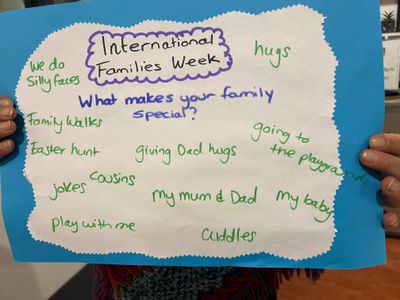 International
Families Week
hugs
We do
Silly faces
What makes your family
special?
Family Walks
going to
the playground
Easter hunt
giving Dad hugs
jokes
Cousins
My mum & Dad
My baby
play with me
Cuddles